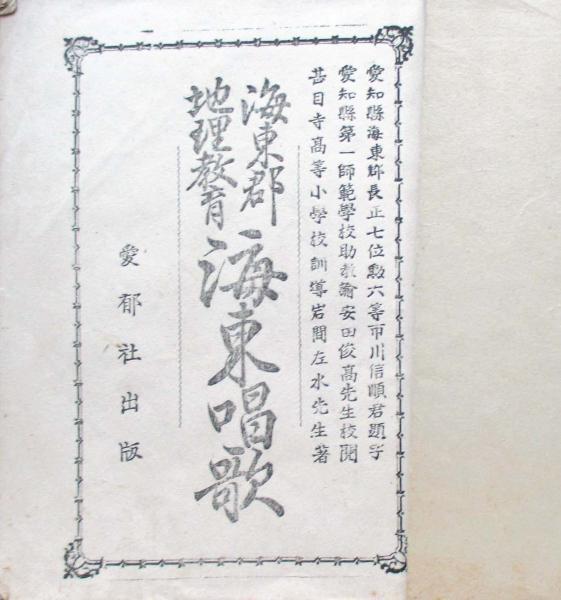 愛知縣海東郡長正七位勲六等市川信順君題字
愛知縣第一師範學校助教諭安田俊高先生校閲
甚目寺高等小學校訓導岩間左水先生著
海東郡
地理教育
海東唱歌
愛郁社出版